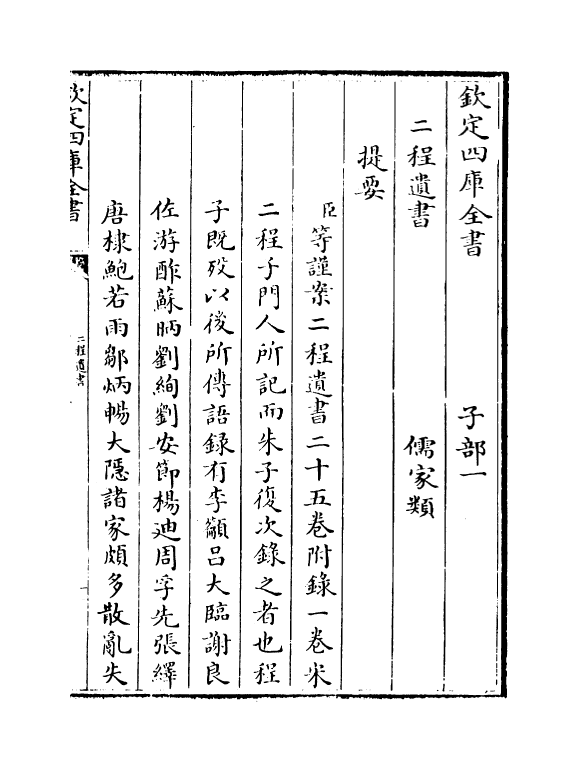 欽定四庫全書　子部一
二程遺書　儒家類
提要
臣等謹案二程遺書二十五卷附錄一卷宋
二程子門人所記而朱子復次錄之者也程
子既歿以後所傳語録有李籲呂大臨謝良
佐游酢蘇昞劉絢劉安節楊迪周孚先張繹
唐棣鮑若雨鄒炳暢大隱諸家頗多散亂失
欽定四庫全書
二程遺書